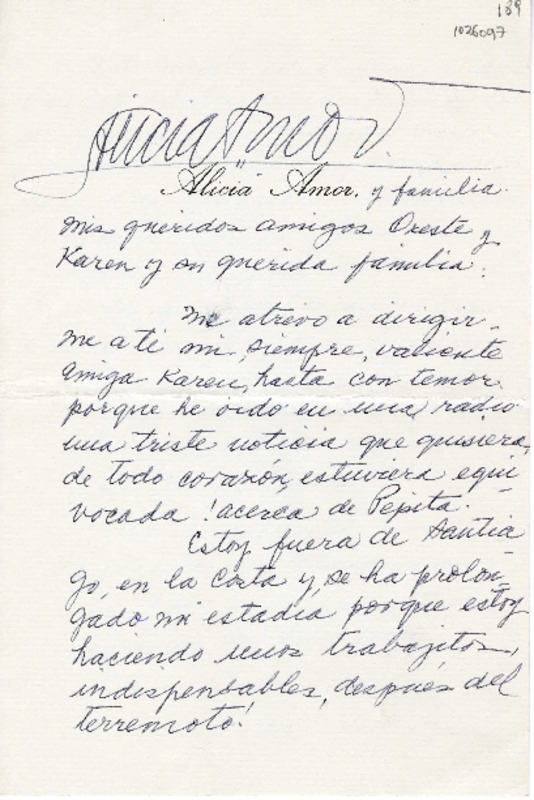 189
1026097
Alicia Amor
Alicia Amor, y familia.
Mis queridos amigos Oreste y
Karen y su querida familia:
Me atrevo a dirigir-
me a ti mi, siempre, valiente
amiga Karen, hasta con temor
porque he oído en una radio
una triste noticia que quisiera,
de todo corazón, estuviera equi
vocada! acerca de Pepita.
Estoy fuera de Santia
go, en la costa y, se ha prolon-
gado mi estadía porque estoy
haciendo unos trabajitos,
indispensables, después del
terremoto!